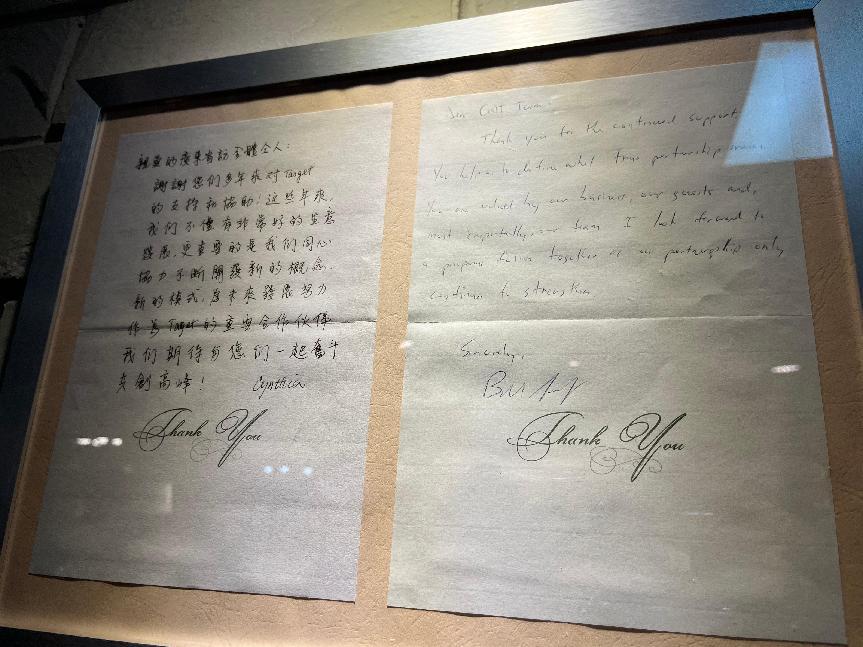 親愛的廣東省訪全體仝人:
謝謝您們多年來对Target
的支持和協助!這些年來,
我们不僅有非常好的生意
發展,更重要的是我们同心
協力不斷開發新的概念,
新的模式,為未來發展努力
作為Target的重要合作伙伴
我们期待与您们一起奮斗
共創高峰!
Cynthia
Thank You
Team:
Thank you for the continued support
You help us to define what true partnership
You are valued by our business, our guests and,
most importantly, our team. I look forward to
a prosperous future together as our partnership only
continues to strengthen
Sincerely,
Thank You